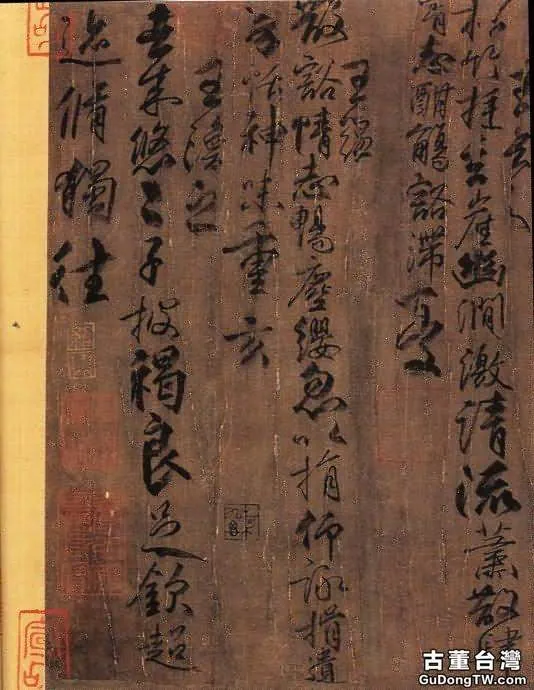 王玄之
松竹挺岩崖幽澗激清流蕭散肆
情志酣觴豁滯憂
王蘊之
散豁情志暢塵纓忽以捐仰詠挹遺
芳怡神味重玄
王渙之
去來悠〻子披褐良足欽超
迹脩獨往
古董台灣
GuDongTW.com